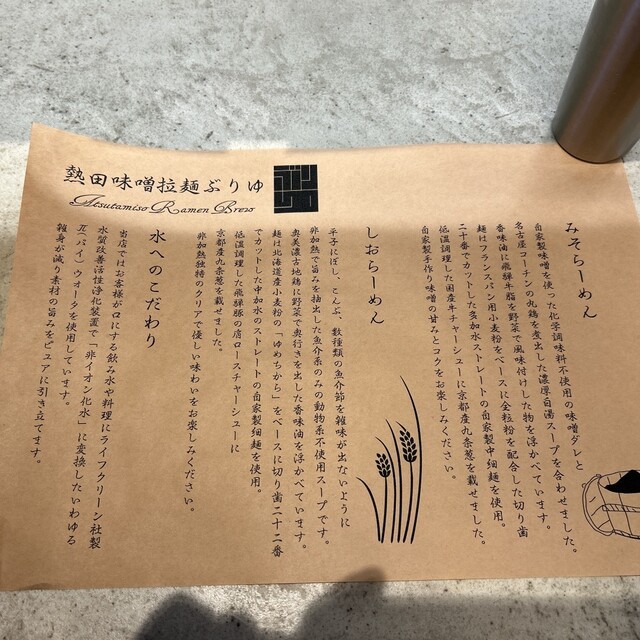 熱田味噌拉麺ぶりゅ
Atsutamiso Ramen Brew
みそらーめん
自家製味噌を使った化学調味料不使用の味噌ダレと
名古屋コーチンの丸鶏を煮出した濃厚白湯スープを合わせました。
香味油に飛騨牛脂を野菜で風味付けした物を浮かべています。
麺はフランスパン用小麦粉をベースに全粒粉を配合した切り歯
二十番でカットした多加水ストレートの自家製中細麺を使用。
低温調理した国産牛チャーシューに京都産九条葱を載せました。
自家製手作り味噌の甘みとコクをお楽しみください。
しおらーめん
平子にぼし、こんぶ、数種類の魚介節を雑味が出ないように
非加熱で旨みを抽出した魚介系のみの動物系不使用スープです。
奥美濃古地鶏に野菜で奥行きを出した香味油を浮かべています。
麺は北海道産小麦粉の「ゆめちから」をベースに切り歯二十二番
でカットした中加水のストレートの自家製細麺を使用。
低温調理した飛騨豚の肩ロースチャーシューに
京都産九条葱を載せました。
非加熱独特のクリアで優しい味わいをお楽しみください。
水へのこだわり
当店ではお客様が口にする飲み水や料理にライフクリーン社製
水質改善活性浄化装置で「非イオン化水」に変換したいわゆる
π(パイ)ウオータを使用しています。
雑身が減り素材の旨みをピュアに引き立てます。